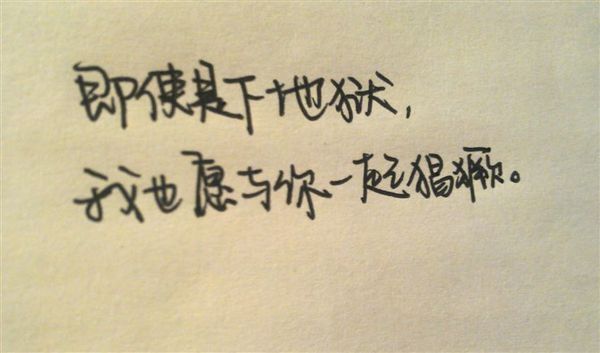 即使是下地狱，
我也愿与你一起猖獗。